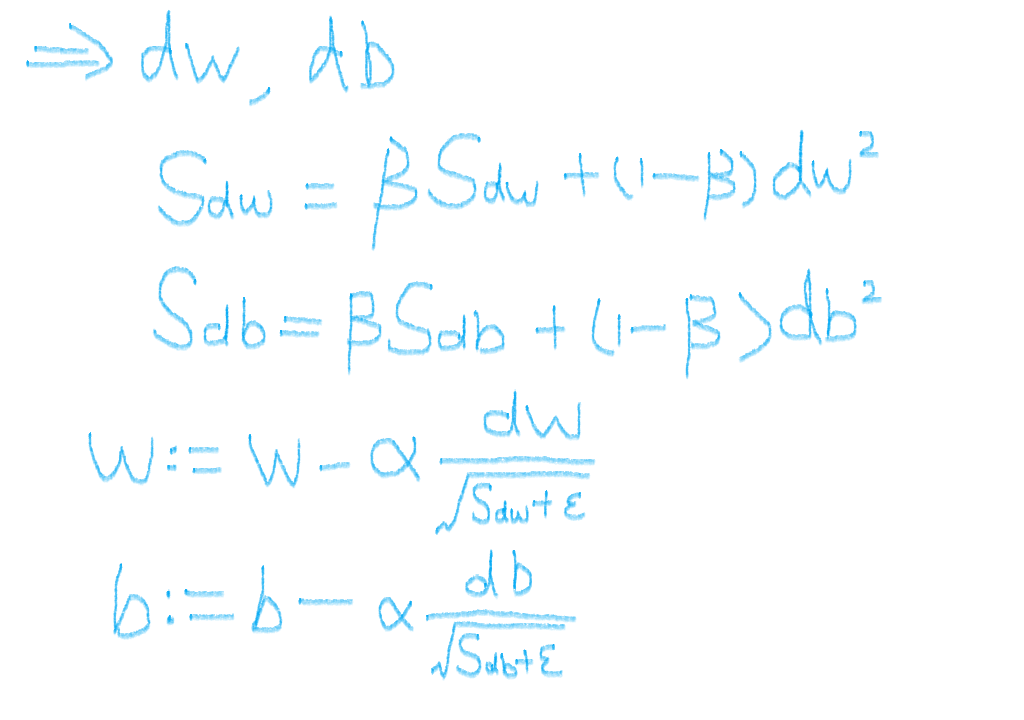 ⇒ dw, db
Sdw = βSdw + (1-β)dw²
Sdb = βSdb + (1-β)db²
W := W - α dw/√(Sdw+ε)
b := b - α db/√(Sdb+ε)